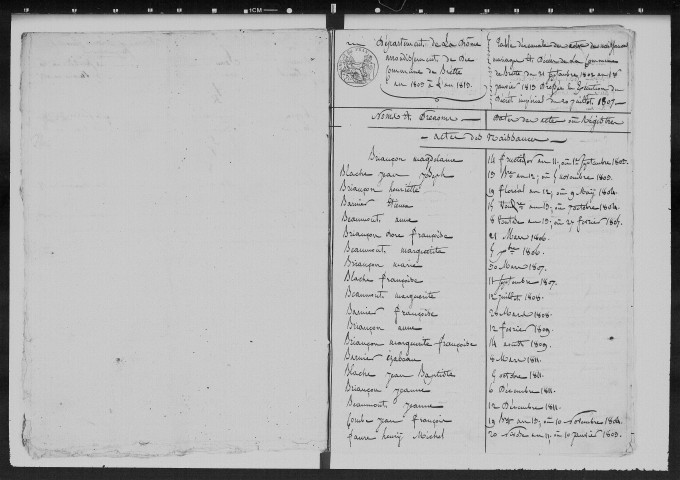 1CM
Département de la Drôme
arrondissement de Die
Commune de Brette
an 1803 à l'an 1813.
Table décennale des actes de naissances
mariages et Décès de la Commune
de Brette du 21 Septembre 1802 au 1er
janvier 1813 Dressée en Exécution du
Décret impérial du 20 juillet 1807.
Noms et Prenoms
Dates des actes ou Registres
actes des Naissances
Briançon magdelaine 14 fructidor an 11, ou 1er Septembre 1803.
Blache jean joseph an 12, ou novembre 1803.
Briançon henriette 19 floréal an 12, ou 9 May 1804.
Barnier Etienne 15 vendre an 13, ou 7 octobre 1804.
Beaumont anne 8 ventose an 13, ou 27 février 1805.
Briançon rose françoise 21 Mars 1806.
Beaumont marguerite 5 1806.
Briançon marie 30 Mars 1807.
Blache françoise 11 Septembre 1807.
Beaumont marguerite 12 juillet 1808.
Barnier françoise 28 March 1808.
Briançon anne 12 février 1809.
Briançon marguerite françoise 14 août 1809.
Barnier izabeau 8 Mars 1811.
Blache jean Baptiste 5 octobre 1811.
Briançon jeanne 6 Décembre 1811.
Beaumont jeanne 12 Décembre 1811.
Combe jean françois 19 an 13, ou 10 Novembre 1804.
faure henry Michel 20 Nivôse an 11, ou 10 janvier 1803.